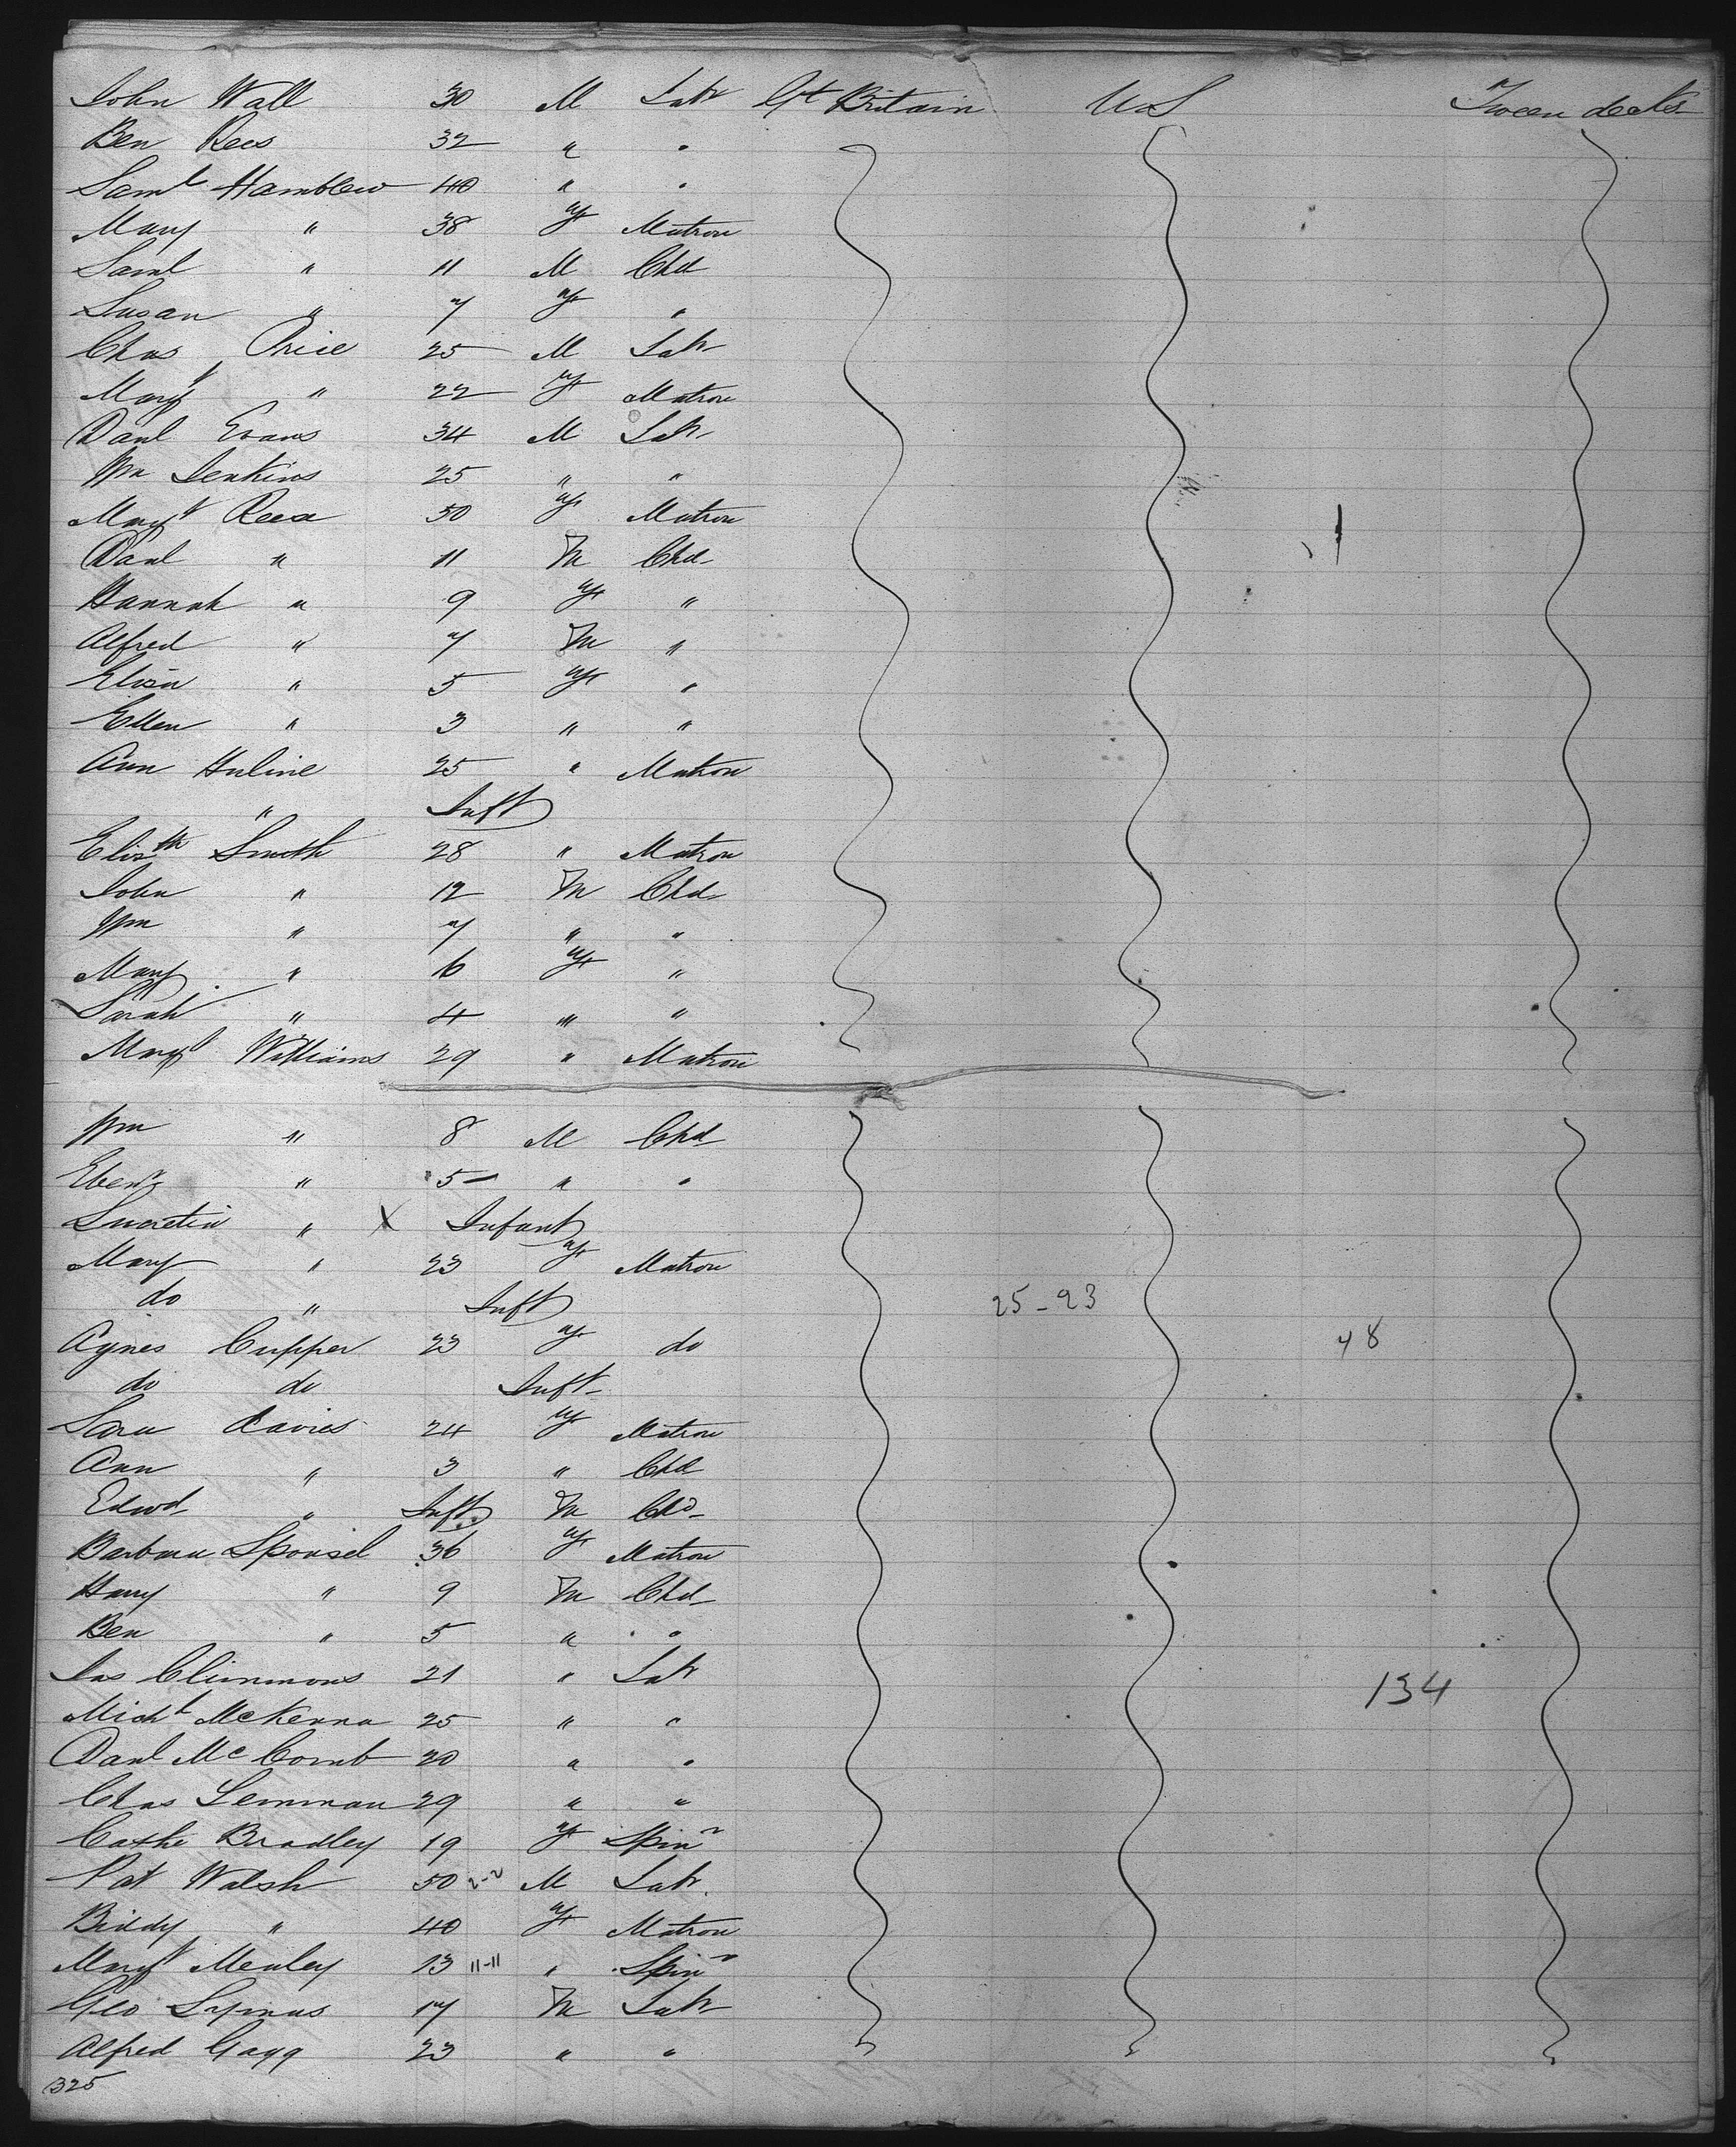 John Wall 30 M Labr Gt Britain U S Tween decks
Ben Rees 32 " "
Saml Hamblew 40 " "
Mary " 38 F Matron
Saml " 11 M Chd
Susan " 7 F "
Chas Price 25 M Labr
Margt " 22 F Matron
Danl Evans 34 M Labr
Wm Jenkins 25 " "
Margt Rees 30 F Matron
Danl " 11 M Chd
Hannah " 9 F "
Alfred " 7 M "
Eliza " 5 F "
Ellen " 3 " "
Ann Huline 25 " Matron
" Inft
Elizth Smith 28 " Matron
John " 12 M Chd
Wm " 7 " "
Mary " 6 F "
Sarah " 4 " "
Margt Williams 29 " Matron
Wm " 8 M Chd
Ebenr " 5 " "
Lucretia " X Infant
Mary " 23 F Matron
do " Inft 25-23
Agnes Cupper 23 F do 48
do do Inft
Sara Davies 24 F Matron
Ann " 3 " Chd
Edwd " Inft M Chd
Barbara Sponsel 36 F Matron
Harry " 9 M Chd
Ben " 5 " "
Jas Climmons 21 " Labr 134
Michl McKenna 25 " "
Danl McComb 20 " "
Chas Lemman 29 " "
Cathe Bradley 19 F Spinr
Pat Walsh 50 2-2 M Labr
Biddy " 40 F Matron
Margt Menley 13 11-11 " Spinr
Geo Lymus 17 M Labr
Alfred Gagg 23 " "
325